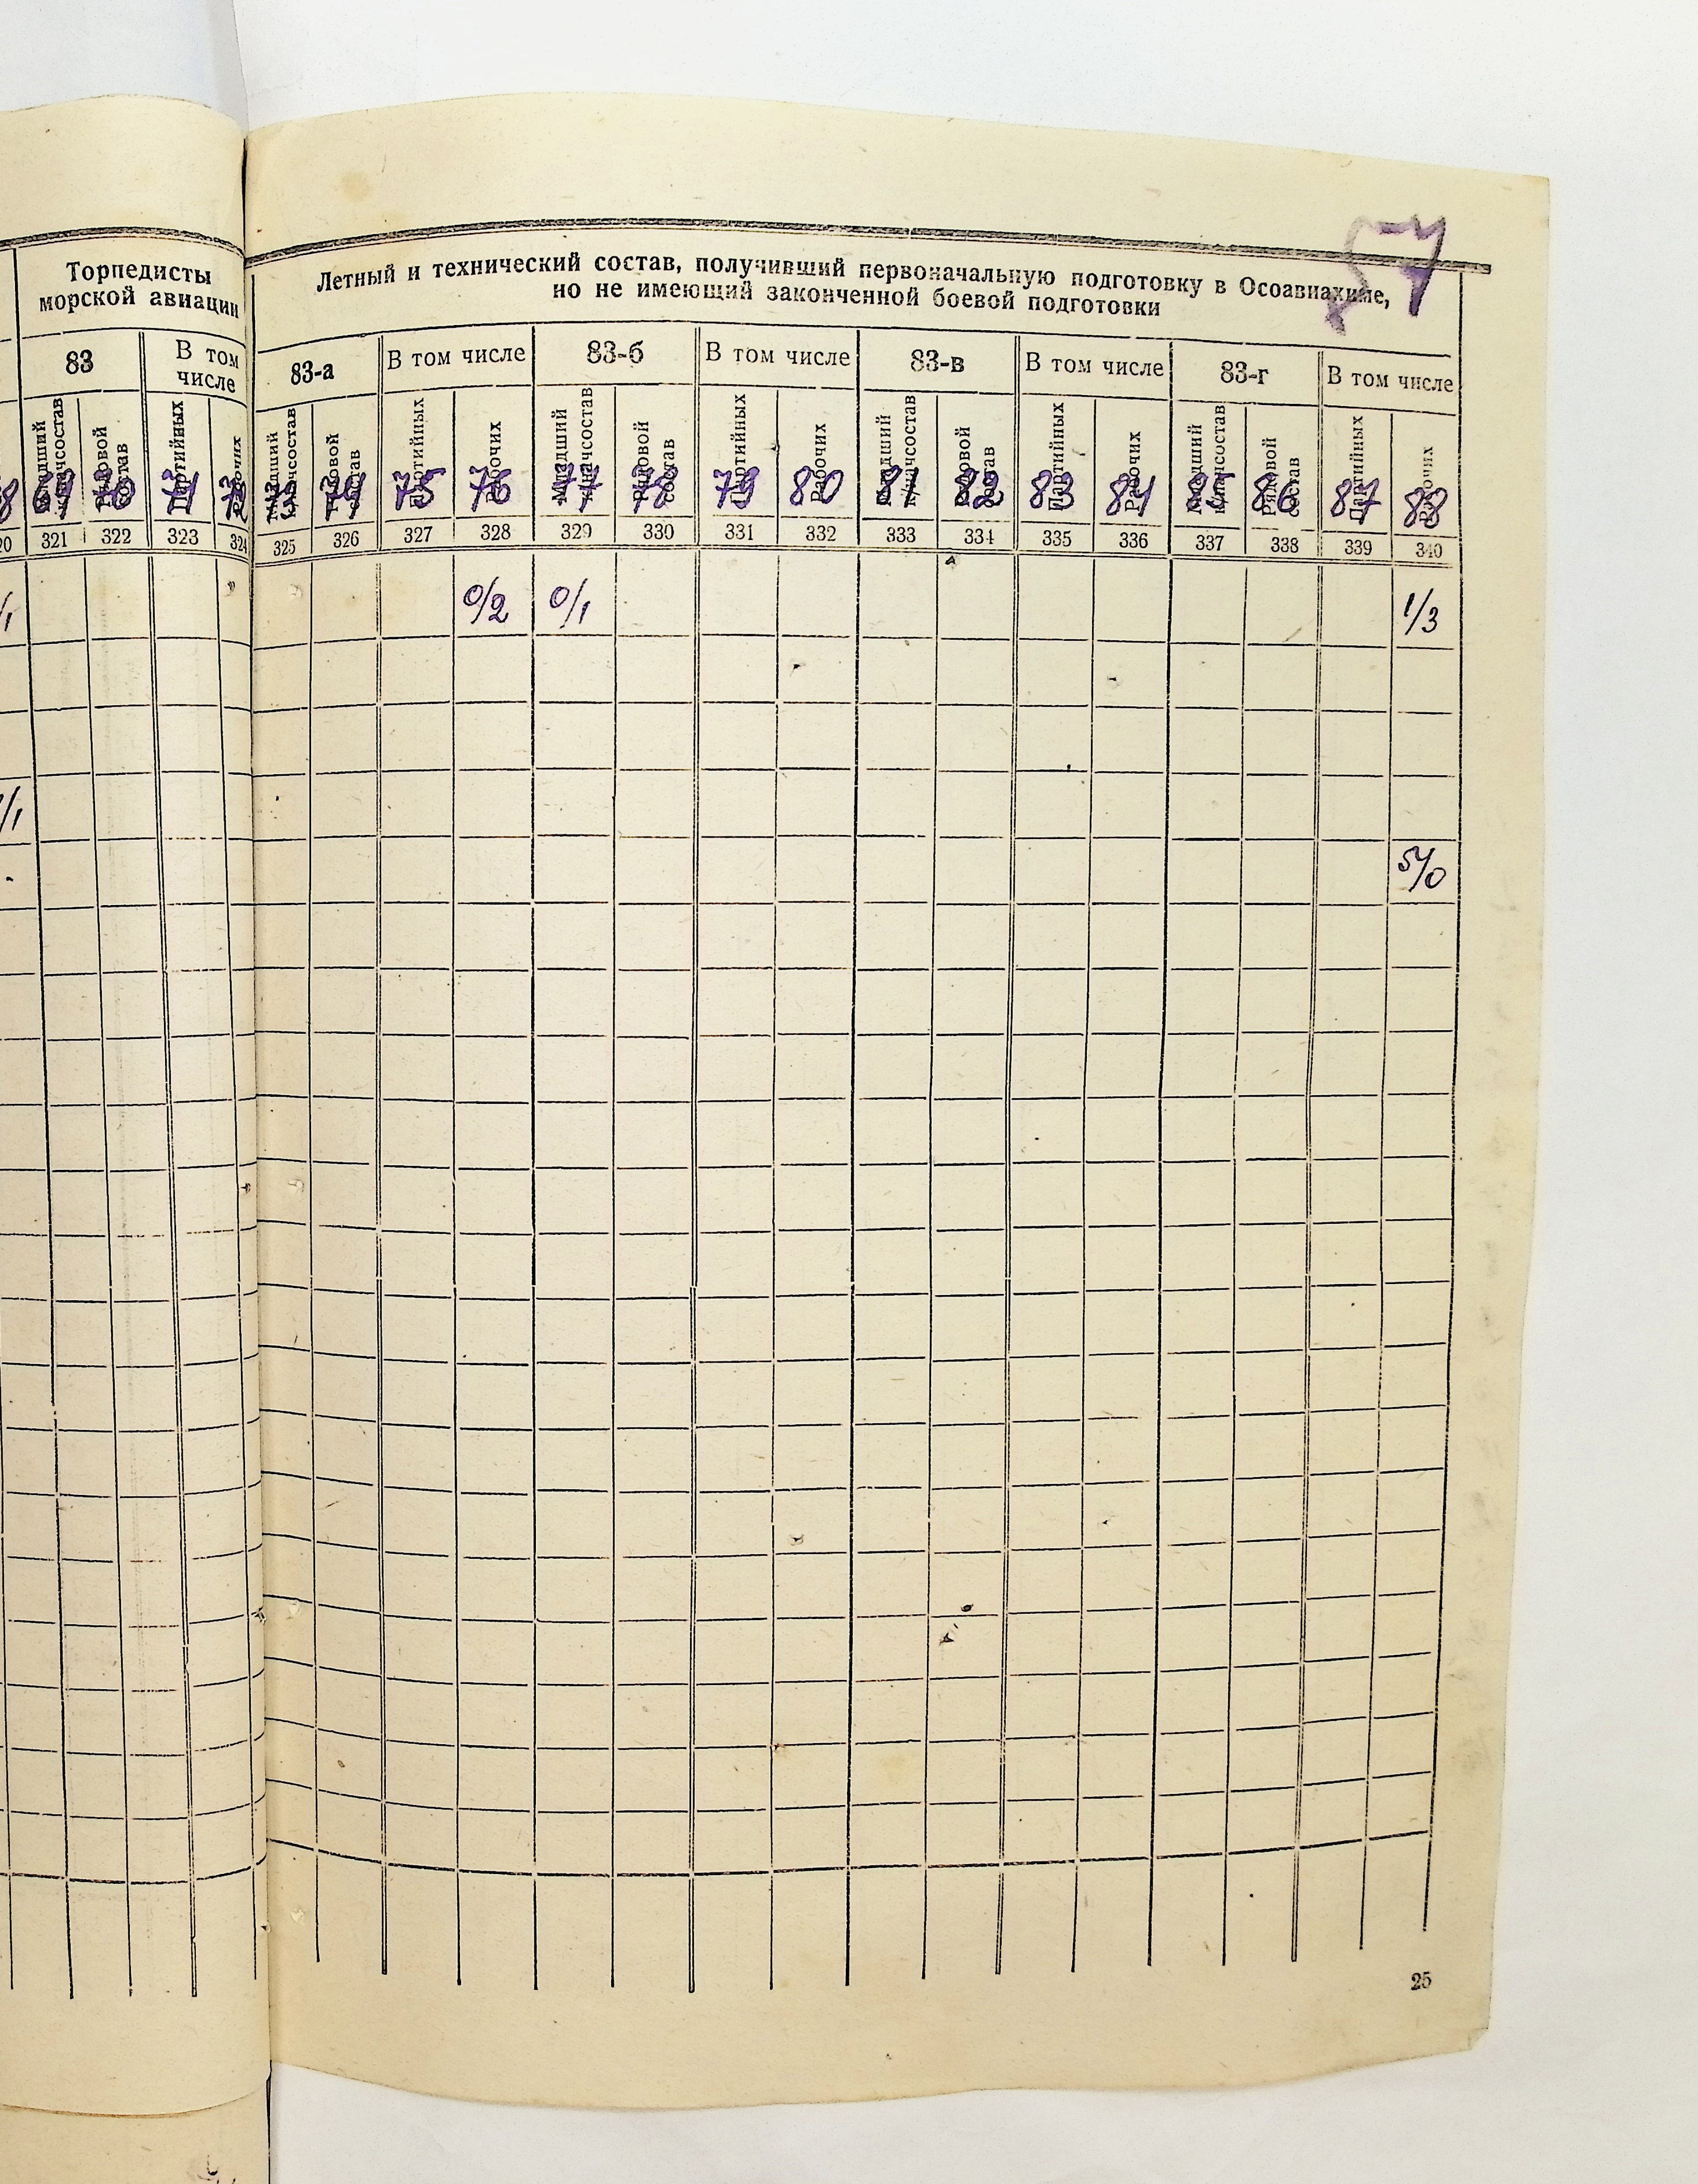 57
Торпедисты
морской авиации
Летный и технический состав, получивший первоначальную подготовку в Осоавиахиме,
но не имеющий законченной боевой подготовки
83
В том
числе
83-а
В том числе
83-б
В том числе
83-в
В том числе
83-г
В том числе
Младший начсостав
Рядовой состав
Партийных
Рабочих
Младший начсостав
Рядовой состав
Партийных
Рабочих
Младший начсостав
Рядовой состав
Партийных
Рабочих
Младший начсостав
Рядовой состав
Партийных
Рабочих
Младший начсостав
Рядовой состав
Партийных
Рабочих
69 70 71 72 73 74 75 76 77 78 79 80 81 82 83 84 85 86 87 88
321 322 323 324 325 326 327 328 329 330 331 332 333 334 335 336 337 338 339 340
0/2 0/1 1/3
5/0
25